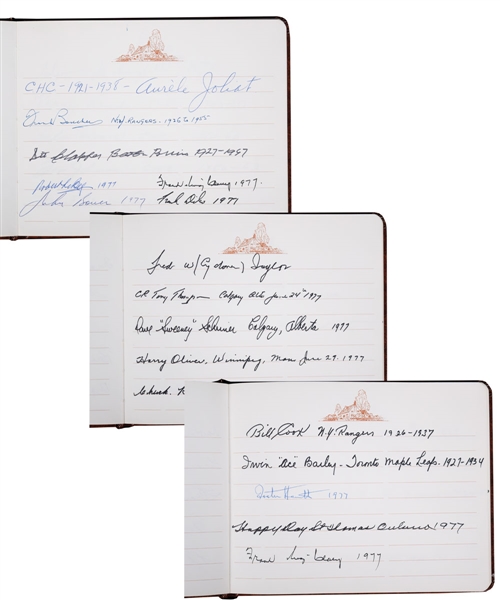 CHC - 1921-1938 - Aurèle Joliat
Frank Boucher N.Y. RANGERS. 1926 to 1955
Dit Clapper Boston Bruins 1927-1947
1977 Frank "King" Clancy 1977.
1977 1977
Fred W (Cyclone) Taylor
C.R. Tiny Thompson Calgary Alta June 24th 1977
Dave "Sweeney" Schriner Calgary, Alberta 1977
Harry Oliver, Winnipeg, Man June 29. 1977
Chuck.
Bill Cook N.Y. Rangers 1926-1937
Irvin "Ace" Bailey - Toronto Maple Leafs. 1927-1934
1977
Happy Day St Thomas Ontario 1977
Frank "King" Clancy 1977